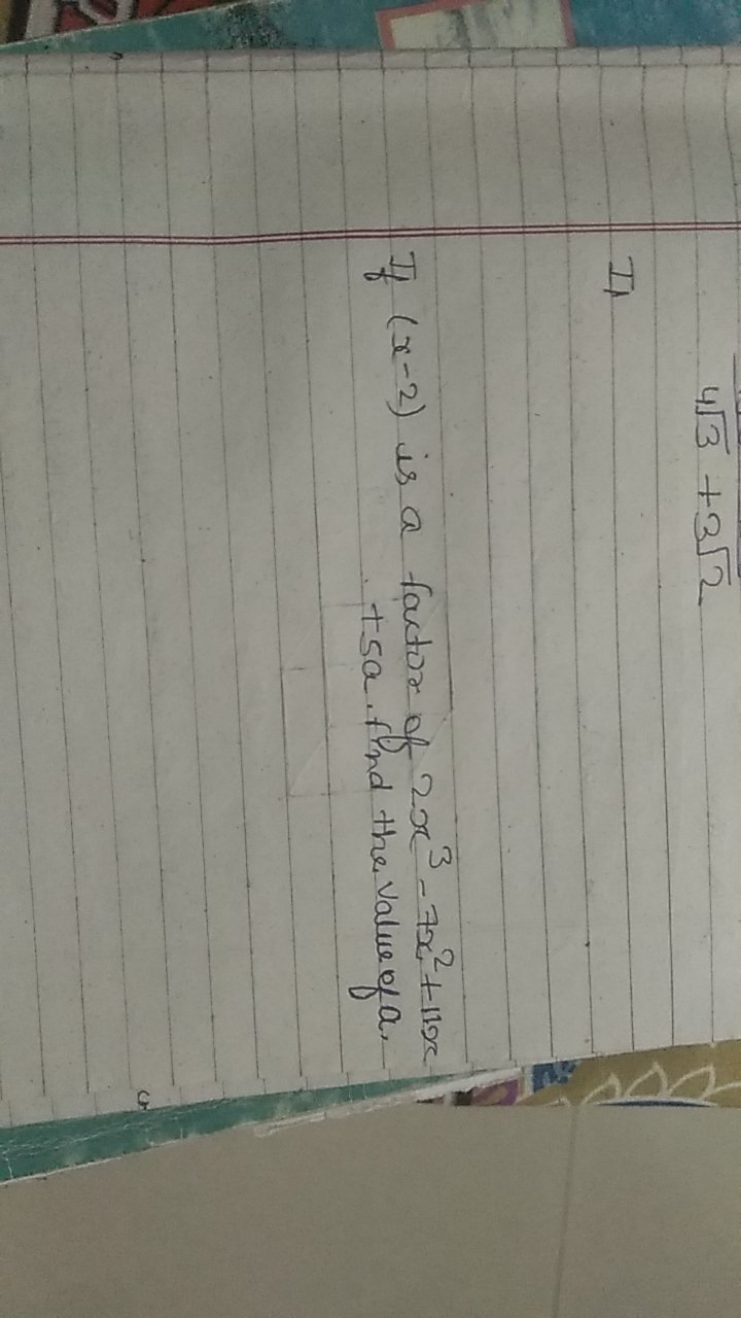 4√3 + 3√2
If
If (x-2) is a factor of 2x³ - 7x² + 11x
+5a. find the value of a.